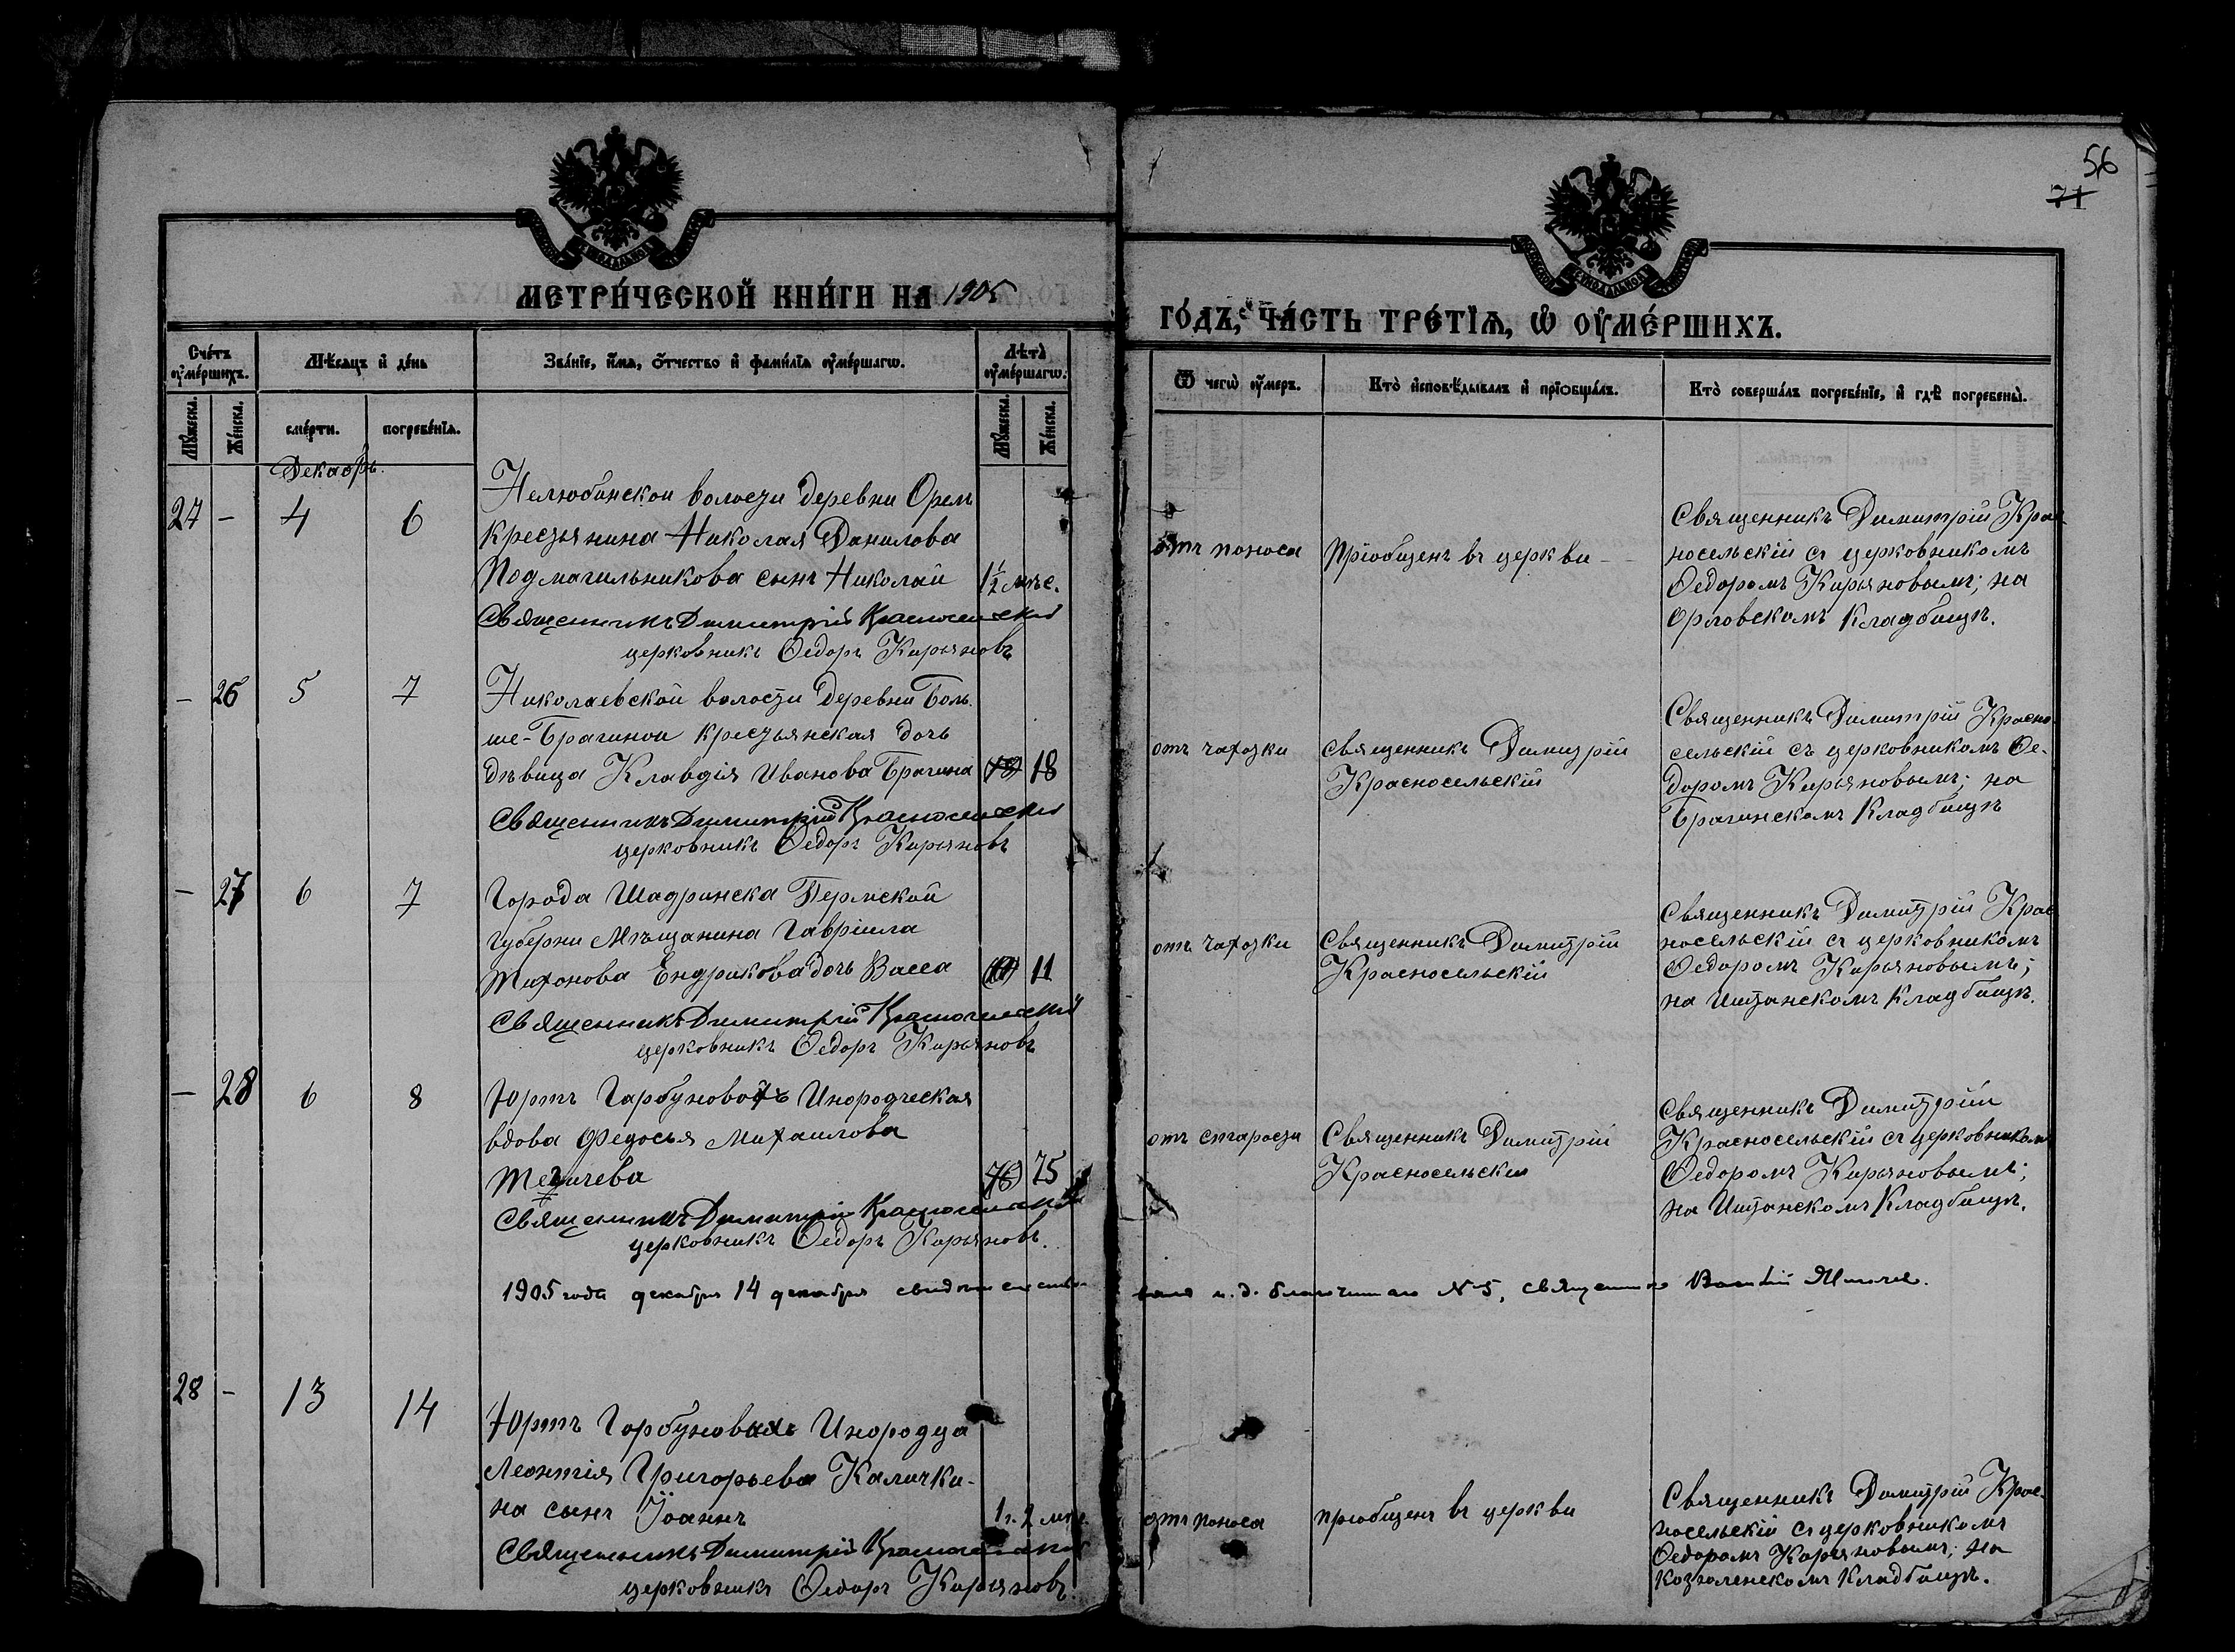 56
71
МЕТРИ́ЧЕСКОЙ КНИ́ГИ НА 1905
ГО́ДЪ, ЧА́СТЬ ТРЕ́ТІѦ, Ѡ҆ ОУ҆МЕ́РШИХЪ.
Сче́тъ оу҆ме́ршихъ.
Мѣ́сѧцъ и҆ де́нь
Зва́нїе, и҆́мѧ, ѻ҆́тчество и҆ фами́лїѧ оу҆ме́ршагѡ.
Лѣ́та оу҆ме́ршагѡ.
Ѿ чегѡ̀ оу҆́меръ.
Кто̀ и҆сповѣ́дывалъ и҆ прїобща́лъ.
Кто̀ соверша́лъ погребе́нїе, и҆ гдѣ̀ погребены̀.
Мꙋ́жеска.
Же́нска.
сме́рти.
погребе́нїѧ.
Мꙋ́жеска.
Же́нска.
Декабрь.
27 - 4 6
Нелюбинской волости деревни Орелъ
крестьянина Николая Данилова
Подмагильникова сынъ Николай 1½ мѣс.
Священникъ Димитрій Красносельскій
церковникъ Ѳедоръ Кирьяновъ
отъ поноса
Пріобщенъ въ церкви -
Священникъ Димитрій Крас-
носельскій съ церковникомъ
Ѳедоромъ Кирьяновымъ; на
Орловскомъ Кладбищѣ.
- 26 5 7
Николаевской волости деревни Боль-
ше-Брагиной крестьянская дочь
дѣвица Клавдія Иванова Брагина (18) 18
Священникъ Димитрій Красносельскій
церковникъ Ѳедоръ Кирьяновъ
отъ чахотки
священникъ Димитрій
Красносельскій
Священникъ Димитрій Красно-
сельскій съ церковникомъ Ѳе-
доромъ Кирьяновымъ; на
Брагинскомъ Кладбищѣ
- 27 6 7
Города Шадринска Пермской
губерни Мѣщанина Гавріила
Тихонова Ендрикова дочь Васса 11
Священникъ Димитрій Красносельскій
церковникъ Ѳедоръ Кирьяновъ
отъ чахотки
Священникъ Димитрій
Красносельскій
Священникъ Димитрій Крас-
носельскій съ церковникомъ
Ѳедоромъ Кирьяновымъ;
на Иштанскомъ Кладбищѣ.
- 28 6 8
Юртъ Инородческая
вдова Федосья Михаилова
75
Священникъ Димитрій Красносельскій
церковникъ Ѳедоръ Кирьяновъ.
отъ старости
Священникъ Димитрій
Красносельскій
Священникъ Димитрій
Красносельскій съ церковникомъ
Ѳедоромъ Кирьяновымъ;
на Иштанскомъ Кладбищѣ.
1905 года декабря 14 декабря свидѣтельство-
валъ и. д. благочиннаго № 5, священникъ
28 - 13 14
Юртъ Горбуновыхъ Инородца
Леонтія Григорьева Калички-
на сынъ Іоаннъ 1 г. 2 мѣс.
Священникъ Димитрій Красносельскій
церковникъ Ѳедоръ Кирьяновъ.
отъ поноса
пріобщенъ въ церкви
Священникъ Димитрій Крас-
носельскій съ церковникомъ
Ѳедоромъ Кирьяновымъ; на
Козюленскомъ Кладбищѣ.